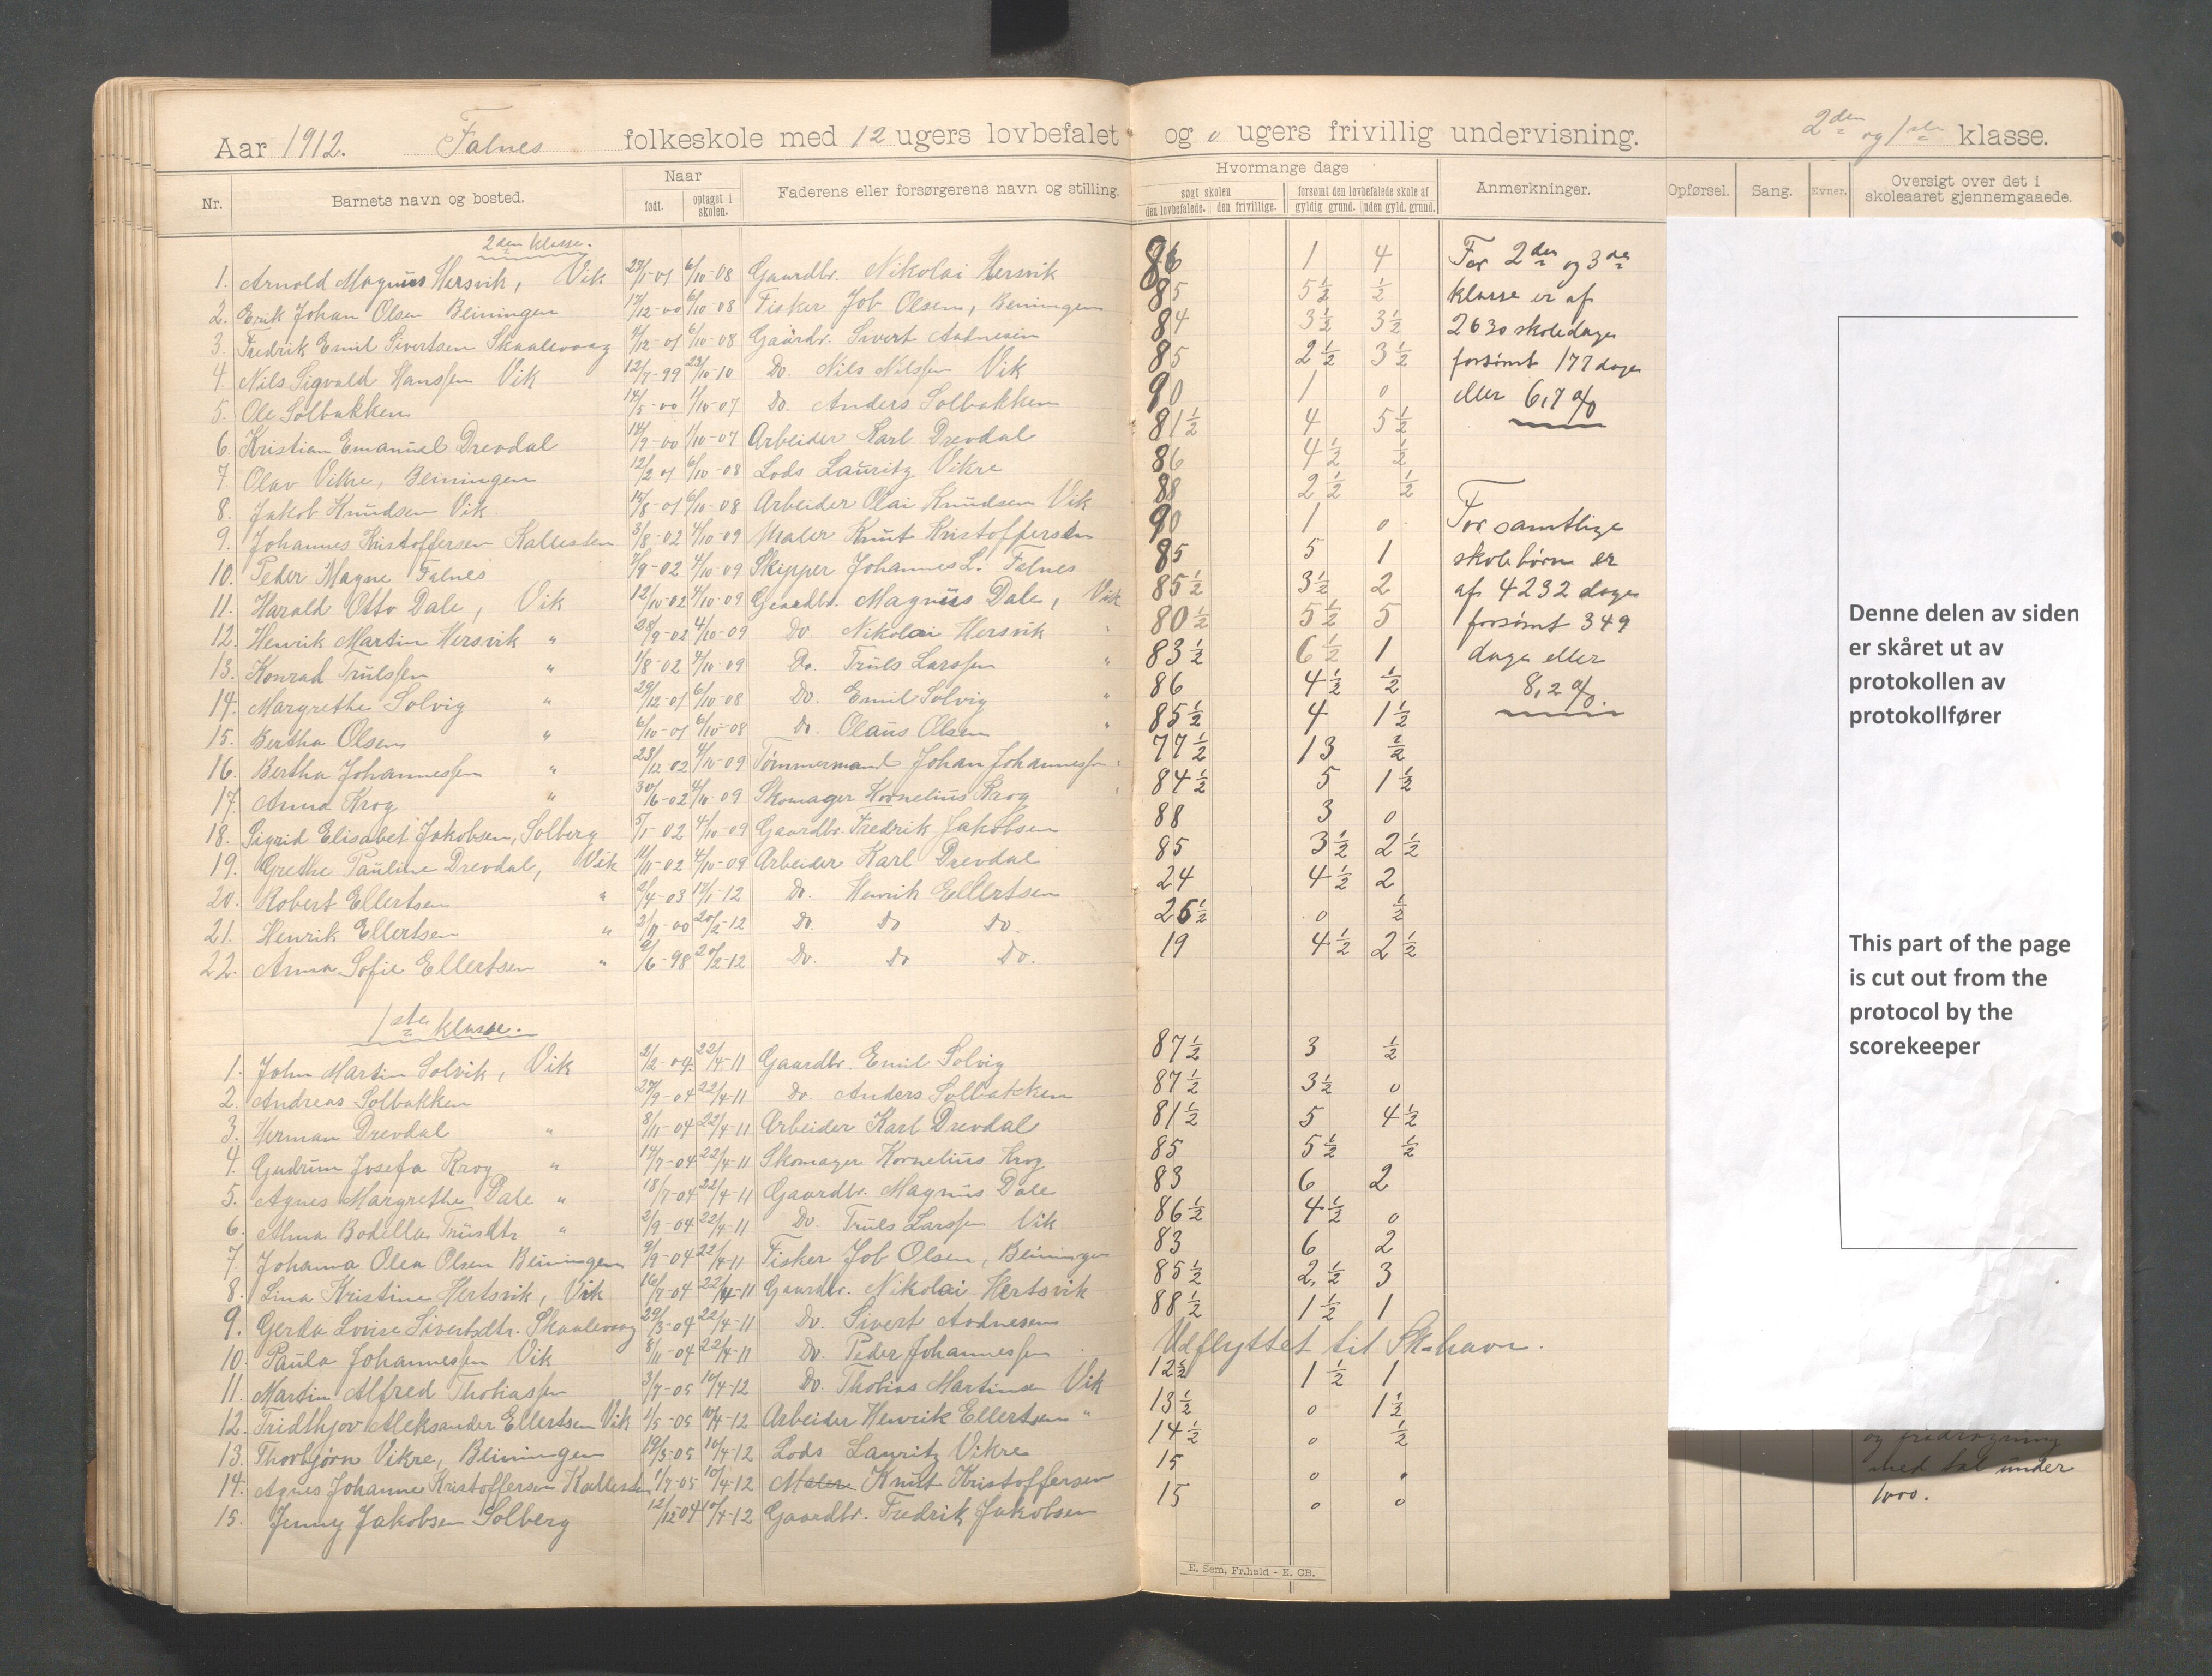 Aar 1912. Falnes folkeskole med 12 ugers lovbefalet og 0 ugers frivillig undervisning. 2den og 1ste klasse.
Nr. Barnets navn og bosted. Naar født. optaget i skolen. Faderens eller forsørgerens navn og stilling. Hvormange dage søgt skolen den lovbefalede. den frivillige. forsømt den lovbefalede skole af gyldig grund. uden gyld. grund. Anmerkninger. Opførsel. Sang. Evner. Oversigt over det i skoleaaret gjennemgaaede.
2den klasse.
1. Arnold Magnus Hersvik, Vik 27/1-01 6/10-08 Gaardbr. Nikolai Hersvik 86 1 4
2. Erik Johan Olsen Beiningen 17/12-00 6/10-08 Fisker Job Olsen, Beiningen 85 5½ ½
3. Fredrik Emil Sivertsen Skaalevaag 4/12-01 6/10-08 Gaardbr. Sivert Aadnesen 84 3½ 3½
4. Nils Sigvald Hanssen Vik 12/7-99 23/10-10 Do. Nils Nilssen Vik 85 2½ 3½
5. Ole Solbakken 14/5-00 1/10-07 Do. Anders Solbakken 90 1 0
6. Kristian Emanuel Drevdal 14/9-00 1/10-07 Arbeider Karl Drevdal 81½ 4 5½
7. Olav Vikre, Beiningen 12/2 01 6/10-08 Lods Lauritz Vikre 86 4½ ½
8. Jakob Knudsen Vik 15/8-01 6/10-08 Arbeider Olai Knudsen Vik 88 2½ ½
9. Johannes Kristoffersen Kallesten 3/8-02 4/10-09 Maler Knut Kristoffersen 90 1 0
10. Peder Magne Falnes 7/9-02 4/10-09 Skipper Johannes L. Falnes 85 5 1
11. Harald Otto Dale, Vik 12/10-02 4/10-09 Gaardbr. Magnus Dale, Vik 85½ 3½ 2
12. Henrik Martin Hersvik " 28/9-02 4/10-09 Do. Nikolai Hersvik " 80½ 5½ 5
13. Konrad Trulssen " 1/8-02 4/10-09 Do. Truls Larssen " 83½ 6½ 1
14. Margrethe Solvig " 29/12-01 6/10-08 Do. Emil Solvig " 86 4½ ½
15. Bertha Olsen " 6/10-01 6/10-08 Do. Olaus Olsen " 85½ 4 1½
16. Bertha Johannessen " 23/12-02 4/10-09 Tømmermand Johan Johannessen " 77½ 13 ½
17. Anna Krog " 30/6-02 4/10-09 Skomager Kornelius Krog " 84½ 5 1½
18. Sigrid Elisabet Jakobsen, Solberg 5/1-02 4/10-09 Gaardbr. Fredrik Jakobsen 88 3 0
19. Grethe Pauline Drevdal, Vik 11/11-02 4/10-09 Arbeider Karl Drevdal 85 3½ 2½
20. Robert Ellertsen " 2/4-03 17/1-12 Do. Henrik Ellertsen 24 4½ 2
21. Henrik Ellertsen " 2/11-00 20/2-12 Do. Do Do. 25½ 0 ½
22. Anna Sofie Ellertsen " 2/6-98 20/2-12 Do. Do Do. 19 4½ 2½
For 2den og 3die
klasse er af
2630 skoledage
forsømt 177 dage
eller 6,7 %
For samtlige
skolebørn er
af 4232 dage
forsømt 349
dage eller
8,2 %.
1ste klasse.
1. John Martin Solvik, Vik 2/2-04 22/4-11 Gaardbr. Emil Solvig 87½ 3 ½
2. Andreas Solbakken 27/9-04 22/4-11 Do. Anders Solbakken 87½ 3½ 0
3. Herman Drevdal " 8/11-04 22/4-11 Arbeider Karl Drevdal 81½ 5 4½
4. Gudrun Josefa Krog " 14/7-04 22/4-11 Skomager Kornelius Krog 85 5½ ½
5. Agnes Margrethe Dale " 18/7-04 22/4-11 Gaardbr. Magnus Dale 83 6 2
6. Alma Bodella Trulsdtr " 2/9-04 22/4-11 Do. Truls Larssen Vik 86½ 4½ 0
7. Johanna Olea Olsen Beiningen 9/9-04 22/4-11 Fisker Job Olsen, Beiningen 83 6 2
8. Lina Kristine Hertsvik, Vik 16/7-04 22/4-11 Gaardbr. Nikolai Hertsvik 85½ 2½ 3
9. Gerda Lovise Sivertsdtr. Skaalevaag 29/3-04 22/4-11 Do. Sivert Aadnesen 88½ 1½ 1
10. Paula Johannessen Vik 8/11-04 22/4-11 Do. Peder Johannessen Udflyttet til Sk-havn.
11. Martin Alfred Thobiassen 3/7-05 10/4-12 Do. Thobias Martinsen Vik 12½ 1½ 1
12. Fridthjov Aleksander Ellertsen Vik 1/5-05 10/4-12 Arbeider Henrik Ellertsen " 13½ 0 1½
13. Thorbjørn Vikre, Beiningen 19/3-05 10/4-12 Lods Lauritz Vikre 14½ 0 ½
14. Agnes Johanne Kristoffersen Kallesten 1/7-05 10/4-12 Maler Knut Kristoffersen 15 0 0
15. Jenny Jakobsen Solberg 12/12 04 10/4-12 Gaardbr. Fredrik Jakobsen 15 0 0
E. Sem. Fr.hald - E. CB.
Denne delen av siden
er skåret ut av
protokollen av
protokollfører
This part of the page
is cut out from the
protocol by the
scorekeeper
og fradragning
med tal under
1000.